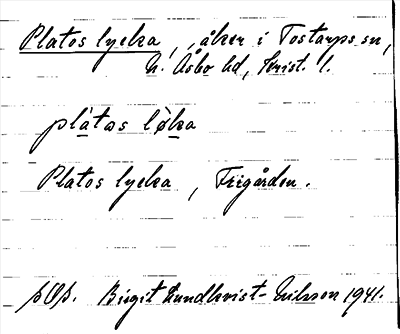 Platos lycka, åker i Tostarps sn,
N. Åsbo hd, Krist. l.
plàtas lø̀ka
Platos lycka, Frigården.
pOp. Birgit Lundkvist-Ericsson 1941.